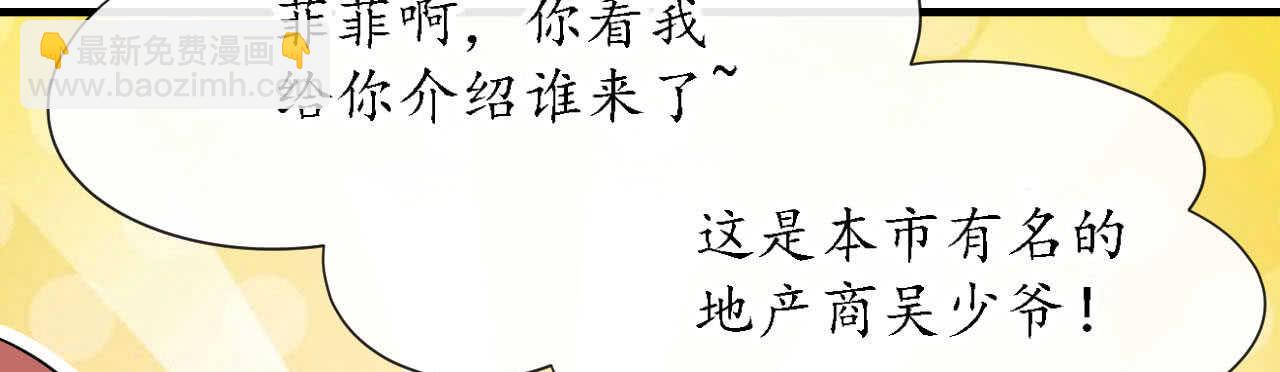 👇最新免费漫画👇
www.baozimh.com
菲菲啊，你看我
给你介绍谁来了~
这是本市有名的
地产商吴少爷！